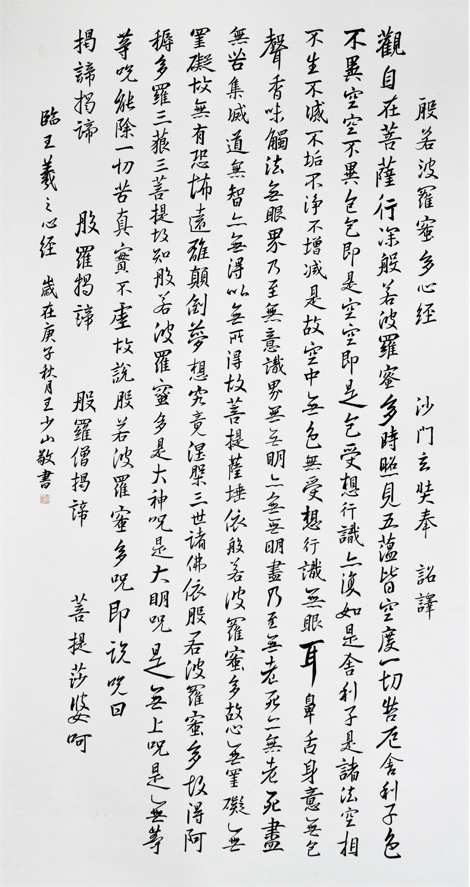 般若波羅蜜多心經 沙門玄奘奉 詔譯
觀自在菩薩行深般若波羅蜜多時照見五蘊皆空度一切苦厄舍利子色
不異空空不異色色即是空空即是色受想行識亦復如是舍利子是諸法空相
不生不滅不垢不淨不增減是故空中無色無受想行識無眼耳鼻舌身意無色
聲香味觸法無眼界乃至無意識界無無明亦無無明盡乃至無老死亦無老死盡
無苦集滅道無智亦無得以無所得故菩提薩埵依般若波羅蜜多故心無罣礙無
罣礙故無有恐怖遠離顛倒夢想究竟涅槃三世諸佛依般若波羅蜜多故得阿
耨多羅三藐三菩提故知般若波羅蜜多是大神呪是大明呪是無上呪是無等
等呪能除一切苦真實不虛故說般若波羅蜜多呪即說呪曰
揭諦揭諦 般羅揭諦 般羅僧揭諦 菩提莎婆呵
臨王羲之心經 歲在庚子秋月王少山敬書